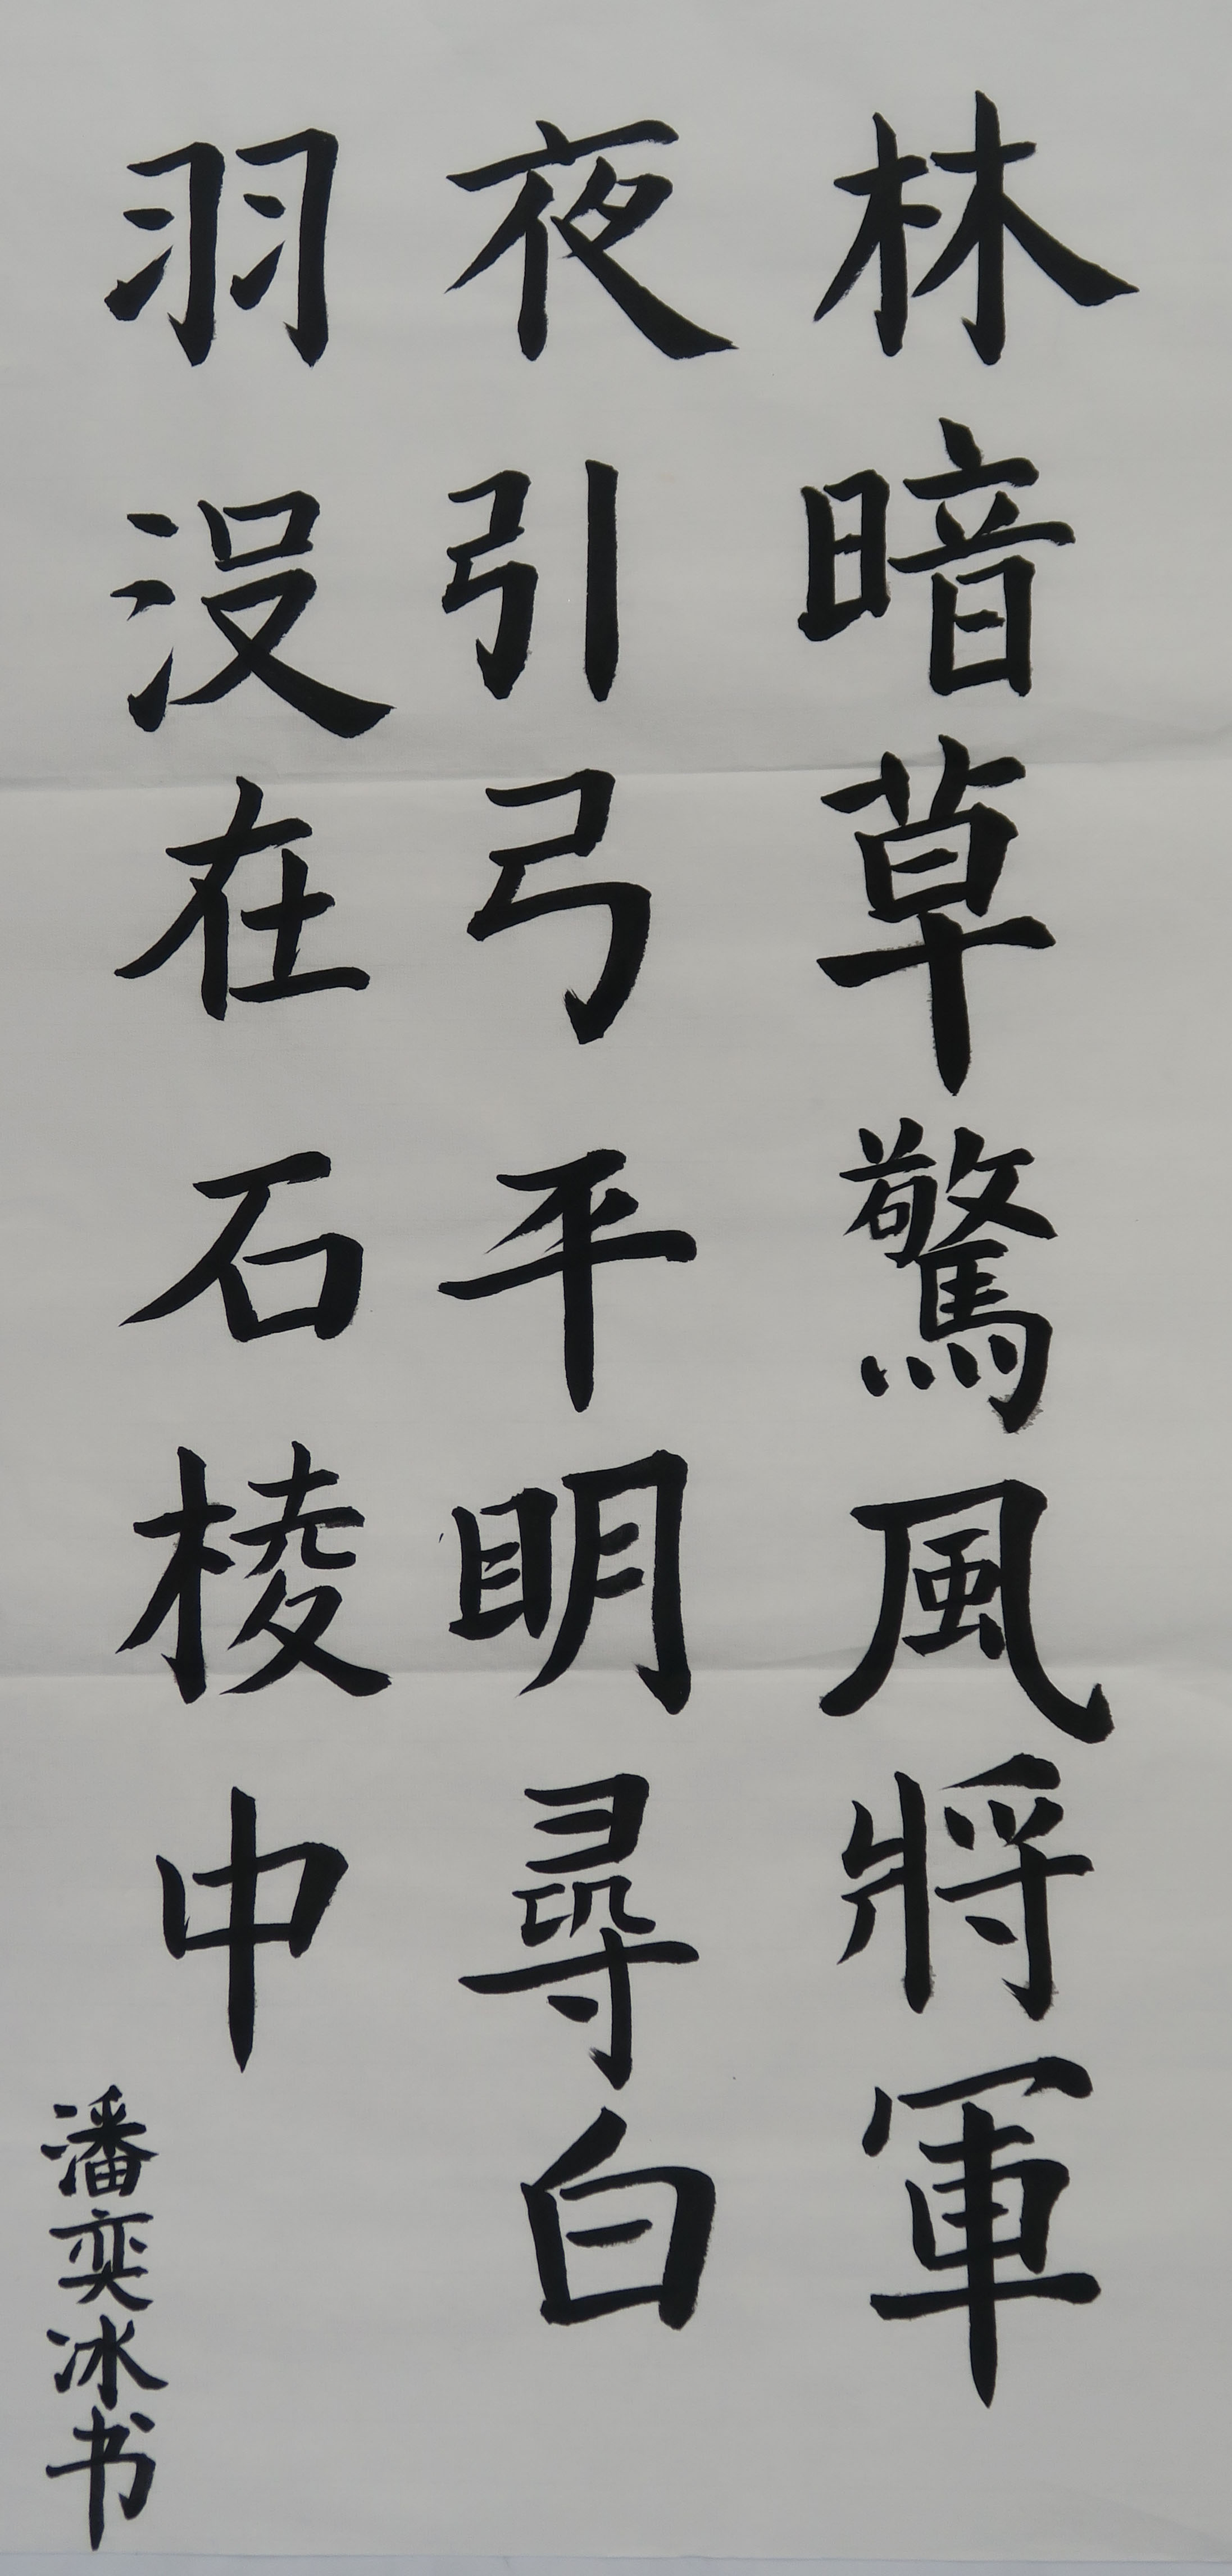 林暗草驚風將軍
夜引弓平明尋白
羽没在石棱中
潘奕冰书